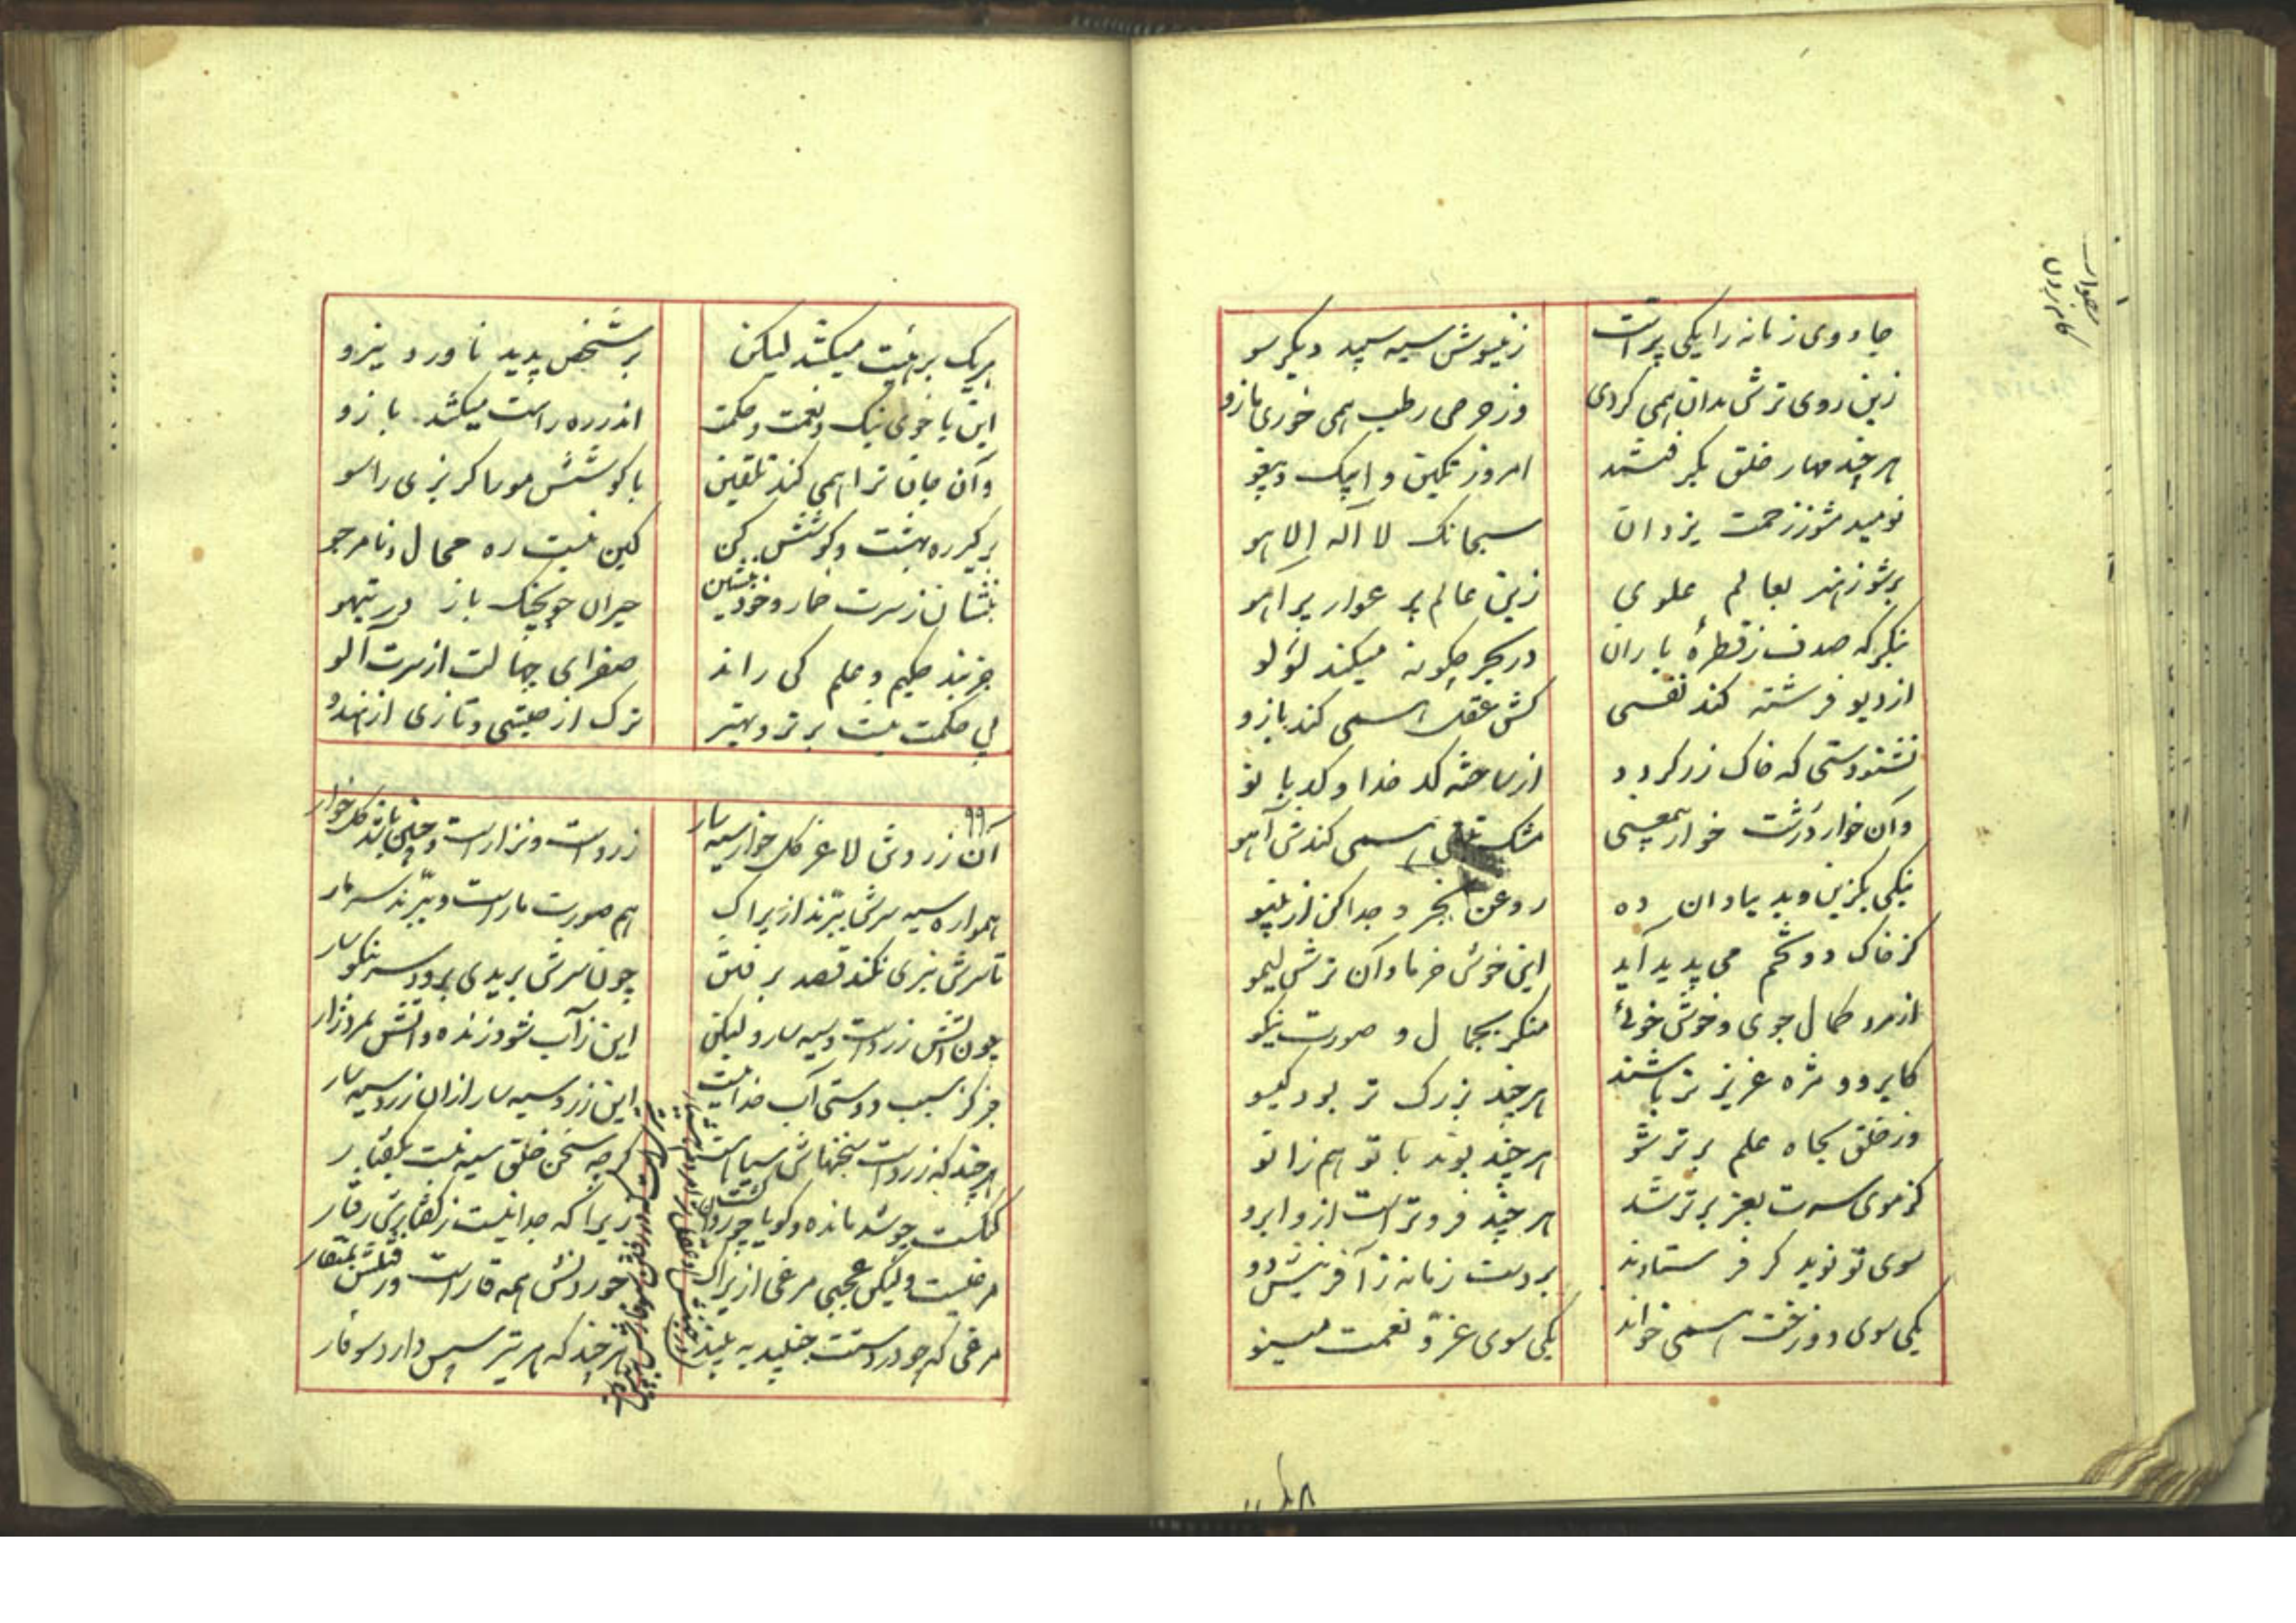 جادوی زمانه را یکی پر است
زینسوش سیه سپید دیگر سو
زین روی ترش بدان همی کردی
وز حرص رطب همی خوری مازو
هر چند مهار خلق بگرفتند
امروز تکین و ایپک و یپغو
نومید مشو ز رحمت یزدان
سبحانک لا اله الا هو
برشو ز هنر بعالم علوی
زین عالم پر عوار پر آهو
بنگر که صدف ز قطرهٔ باران
در بحر چگونه میکند لؤلؤ
از دیو فرشته کند نفسی
کش عقل همی کند بازو
نشنودستی که خاک زر گردد
از ساخته کدخدا و کدبانو
وان خوار درشت خوار بی‌معنی
مشک همی کندش آهو
نیکی بگزین و بد بنادان ده
روغن بخرد جدا کن از پینو
کز خاک دو تخم می پدید آید
این خوش خرما و آن ترش لیمو
از مرد کمال جوی و خوش خوئی
منگر بجمال و صورت نیکو
کابرو و مژه عزیزتر باشند
هر چند بزرگ تر بود گیسو
وز خلق بجاه علم برتر شو
هر چند بوند با تو هم زانو
کز موی سرت بعز برتر شد
هر چند فروتر است ازو ابرو
سوی تو نوید گر فرستادند
بر دست زمانه ز آفرینش دو
یکی سوی دوزخت همی خواند
یکی سوی عز و نعمت مینو
هر یک برهیت میکشد لیکن
بر شخص پدید ناورد نیرو
این با خوی نیک و نعمت و حکمت
اندر ره راست میکشد بازو
وان جان ترا همی کند تلقین
با کوشش مور و گربزی راسو
بر گیر ره بهشت و کوشش کن
کین نیست ره محال و نامرجو
بنشان ز سرت خمار و خود منشین
حیران چو بچنگ باز در تیهو
جز پند حکیم و علم کی راند
صفرای جهالت از سرت آلو
بی حکمت نیست برتر و بهتر
ترک از حبشی و تازی از هندو
۹۹
آن زردوش لاغر گل خوار سیه سار
زرد است و نزار است و چنین باشد گل خوار
همواره سیه سرش ببرند ازیراک
هم صورت مار است و ببرند سر مار
تا سرش نبری نکند قصد برفتن
چون سرش بریدی برود سر نگوسار
چون آتش زرد است و سیه سار ولیکن
این ز آب شود زنده و آتش بمرد زار
جز کز سبب دوستی آب جدا نیست
این زرد و سیه سار از آن زرد سیه سار
هر چند که زرد است سخنهاش سیاه است
گرچه سخن خلق سیه نیست بگفتار
گنگست چو شد مانده و گویا چو روان گشت
زیرا که جدا نیست ز گفتارش رفتار
مرغیست ولیکن عجبی مرغی ازیراک
خوردنش همه قار است و رفتنش بمنقار
مرغی که چو در دست تو جنبید ببیند
هر چند که هر تیر سپس دارد سوفار